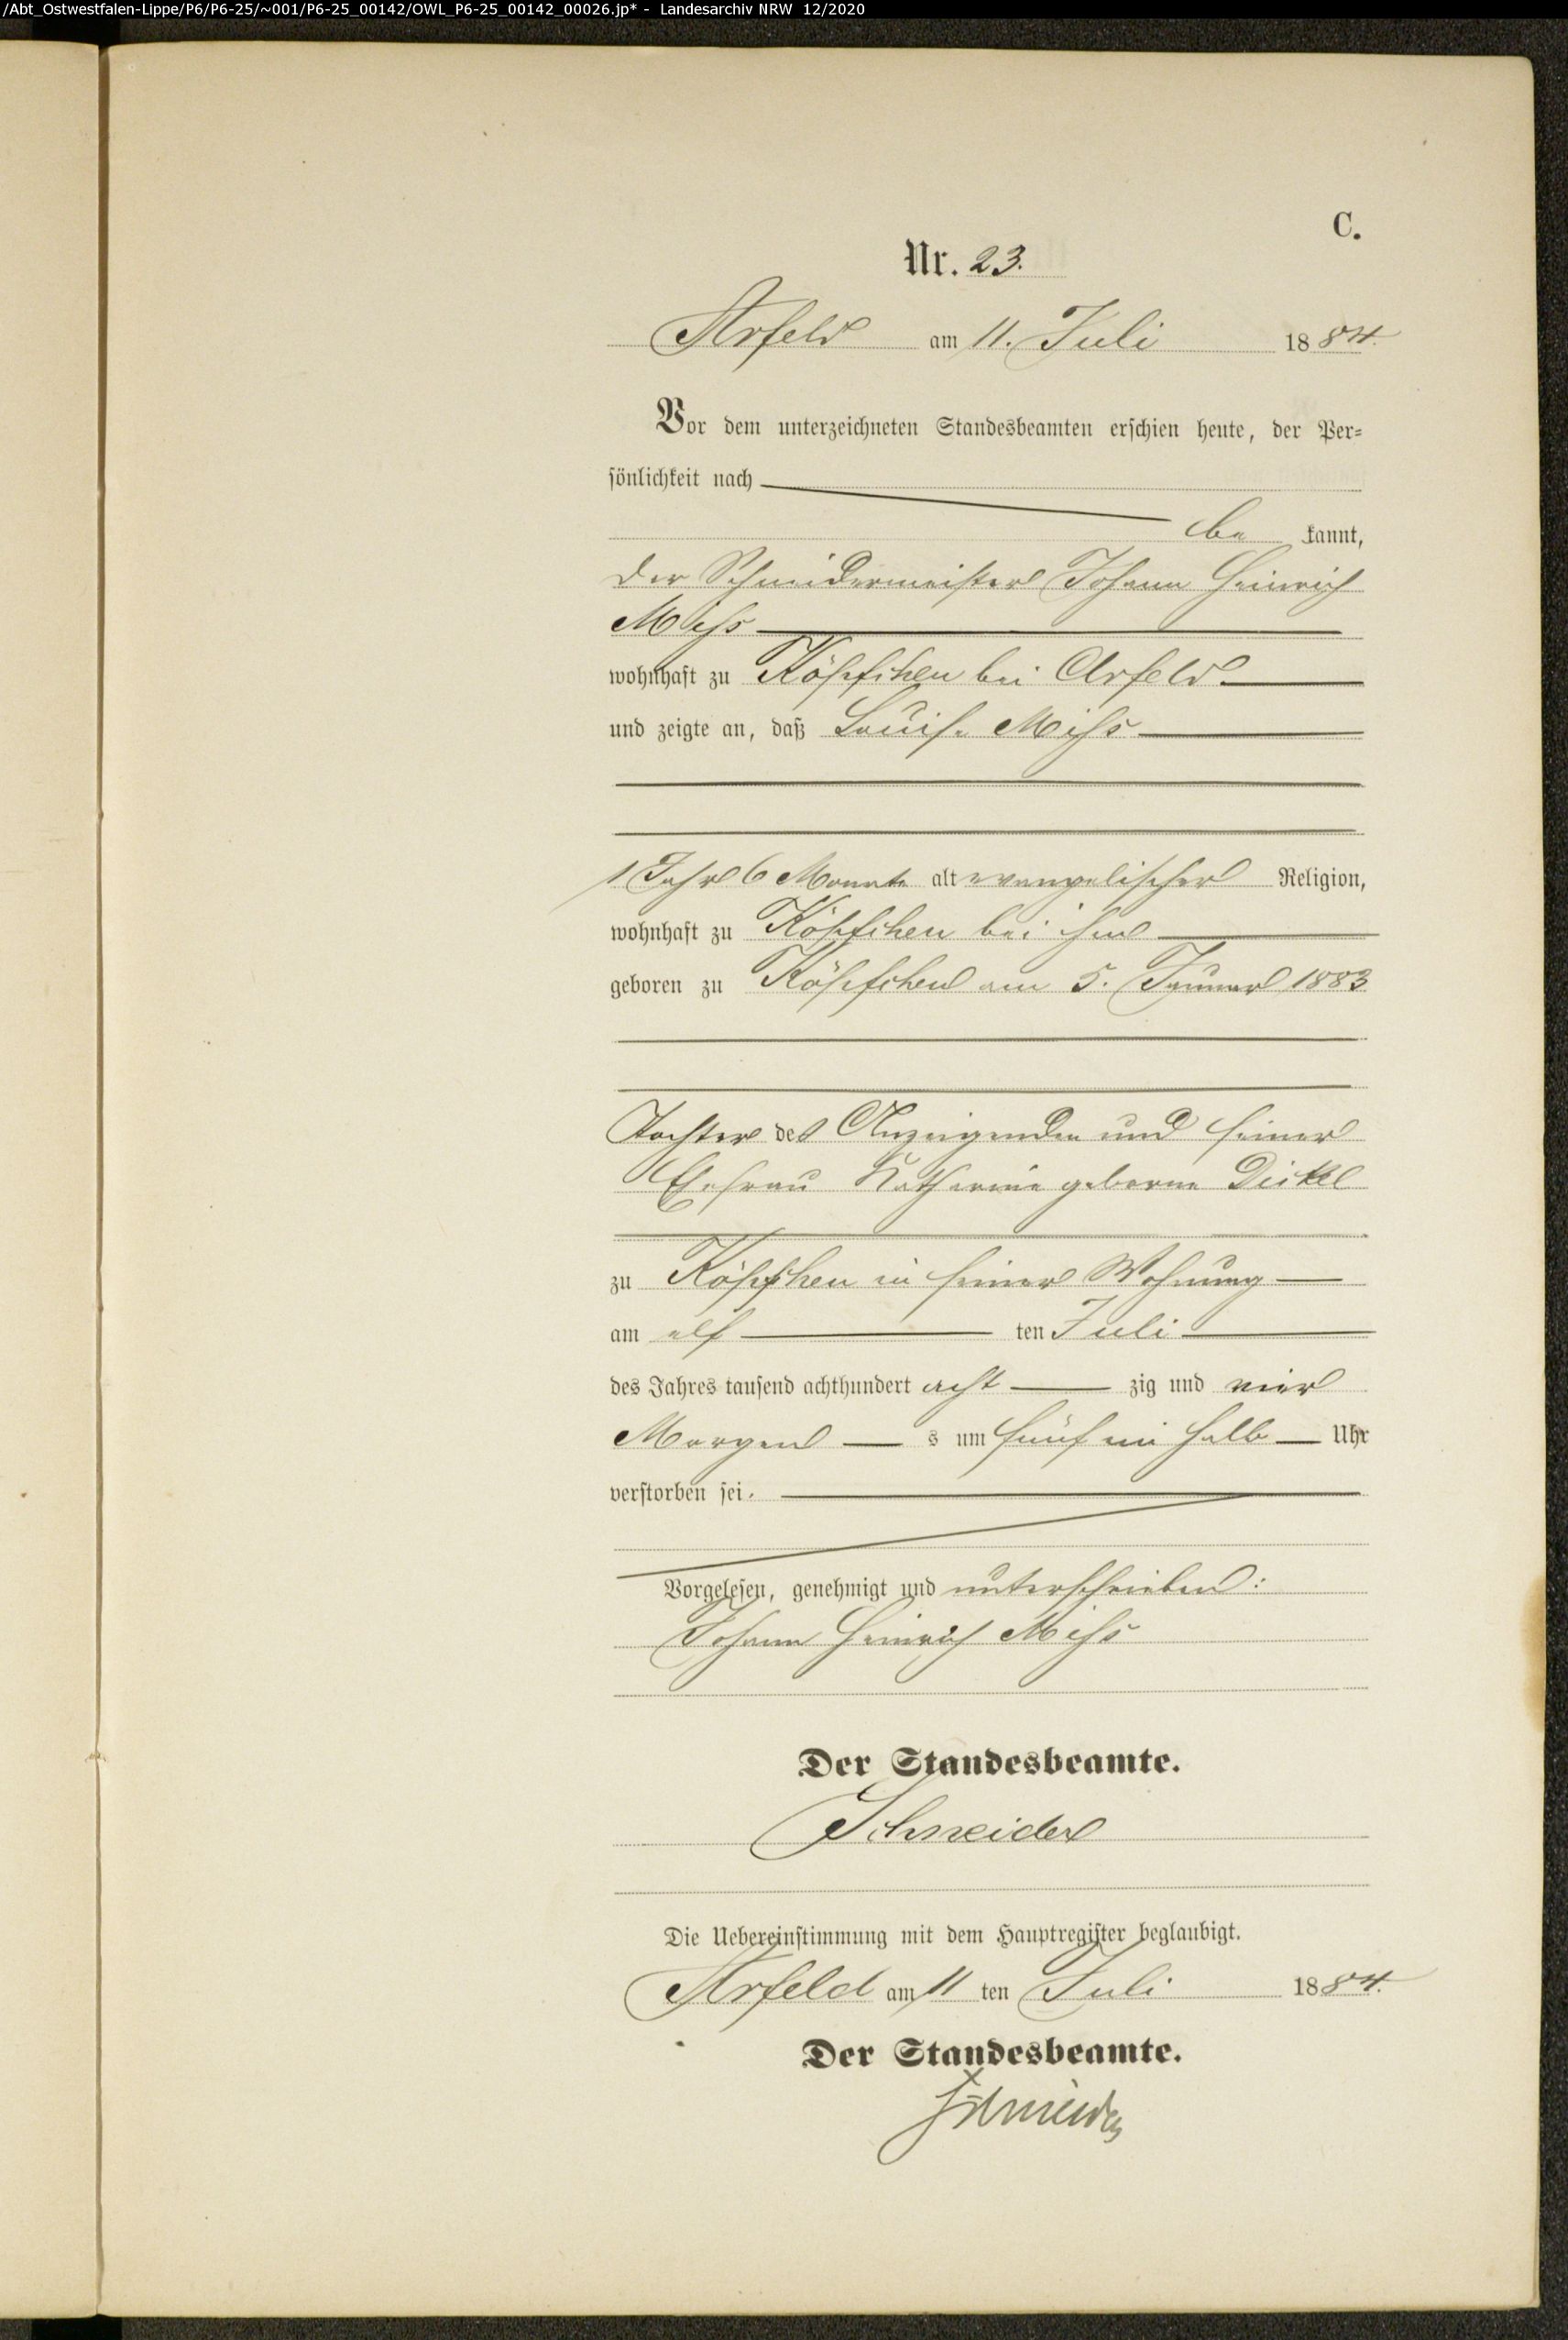 /Abt_Ostwestfalen-Lippe/P6/P6-25/~001/P6-25_00142/OWL_P6-25_00142_00026.jp* - Landesarchiv NRW 12/2020
C.
Nr. 23.
Arfeld am 11. Juli 1884.
Vor dem unterzeichneten Standesbeamten erschien heute, der Per-
sönlichkeit nach
be kannt,
der Schneidermeister Johann Heinrich
wohnhaft zu Köpfchen bei Arfeld
und zeigte an, daß Louise
1 Jahr 6 Monate alt evangelischer Religion,
wohnhaft zu Köpfchen bei ihm
geboren zu Köpfchen am 5. Januar 1883
Tochter des Anzeigenden und seiner
Ehefrau Katharine geborne Dickel
zu Köpfchen in seiner Wohnung
am elf ten Juli
des Jahres tausend achthundert acht zig und vier
Morgen s um fünf ein halb Uhr
verstorben sei.
Vorgelesen, genehmigt und unterschrieben:
Johann Heinrich
Der Standesbeamte.
Schneider
Die Uebereinstimmung mit dem Hauptregister beglaubigt.
Arfeld am 11 ten Juli 1884.
Der Standesbeamte.
Schneider